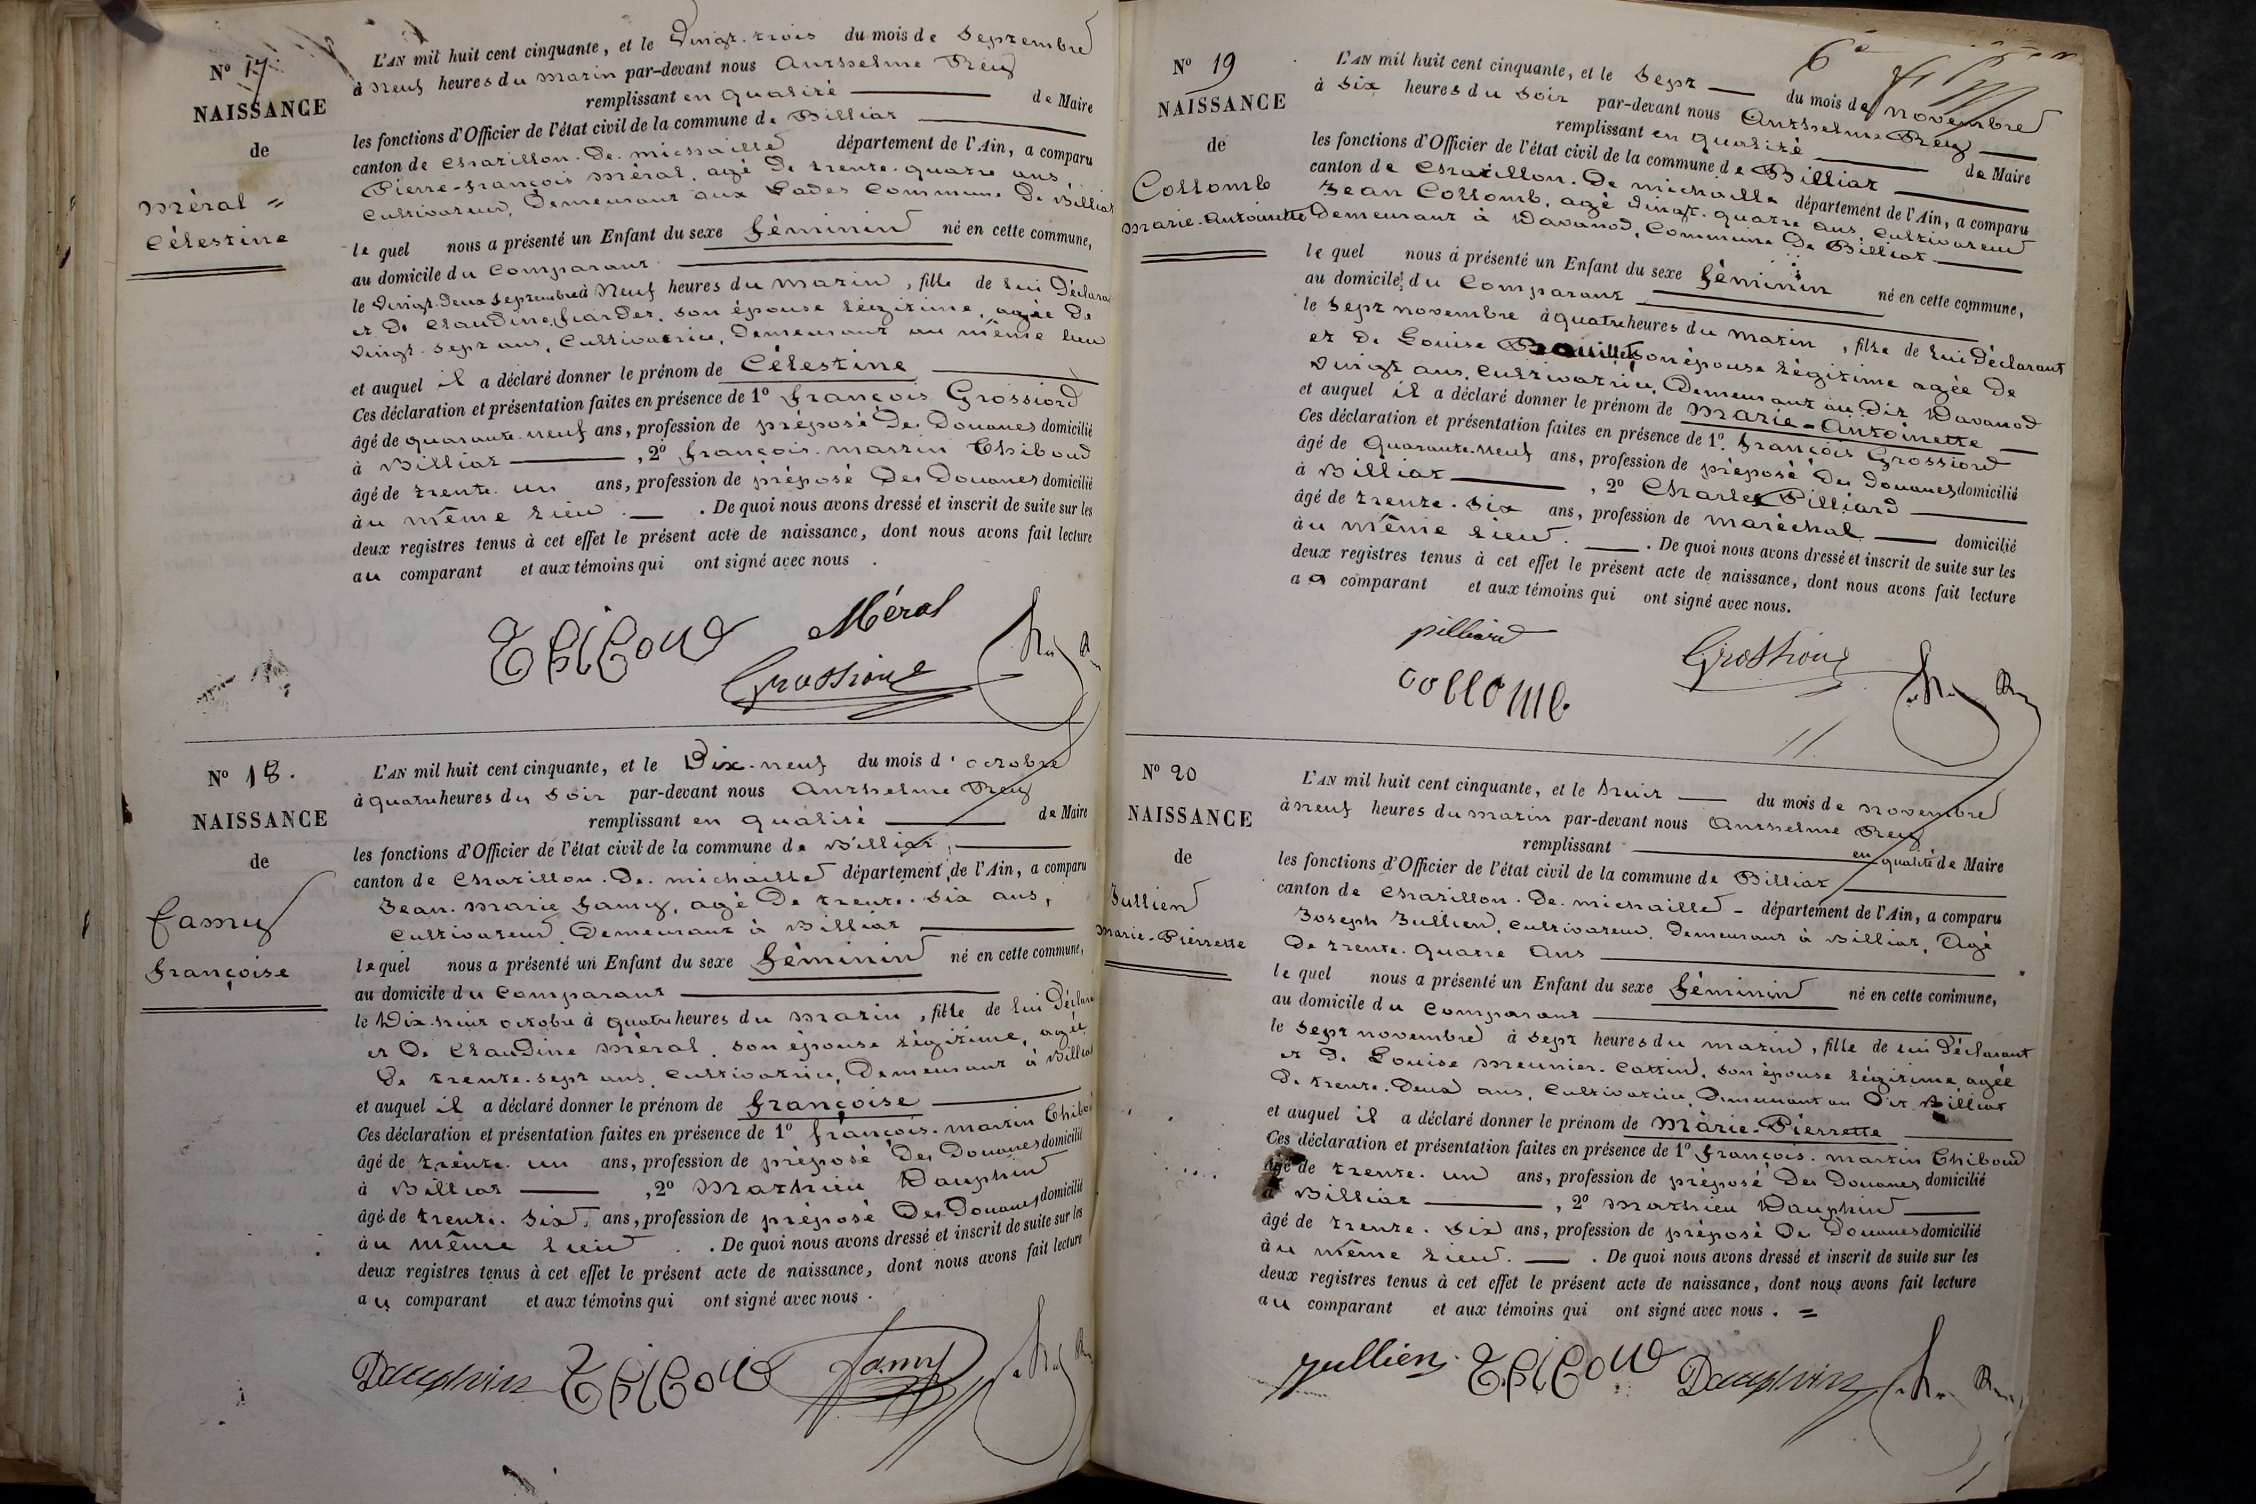 N° 17
NAISSANCE
de
Méral =
Célestine
L'AN mil huit cent cinquante, et le Vingt-trois du mois de Septembre
à Neuf heures du matin par-devant nous Anthelme Rey
remplissant en qualité de Maire
les fonctions d'Officier de l'état civil de la commune de Billiat
canton de Chatillon-de-michaille département de l'Ain, a comparu
Pierre-françois Méral, agé de trente-quatre ans,
Cultivateur, demeurant aux Lades Commune de Billiat
lequel nous a présenté un Enfant du sexe féminin né en cette commune,
au domicile du Comparant
le Vingt-deux Septembre à Neuf heures du matin, fille de lui Déclarant
et de Claudine, son épouse légitime, agée de
vingt-sept ans, Cultivatrice, demeurant au même lieu
et auquel il a déclaré donner le prénom de Célestine
Ces déclaration et présentation faites en présence de 1° françois Grossiord
âgé de quarante-neuf ans, profession de préposé des Douanes domicilié
à Billiat, 2° françois-martin Thiboud
âgé de trente-un ans, profession de préposé des Douanes domicilié
au même lieu. De quoi nous avons dressé et inscrit de suite sur les
deux registres tenus à cet effet le présent acte de naissance, dont nous avons fait lecture
au comparant et aux témoins qui ont signé avec nous.
Thiboud Méral
Grossiord
N° 18.
NAISSANCE
de
famy
françoise
L'AN mil huit cent cinquante, et le Dix-neuf du mois d'octobre
à quatre heures du Soir par-devant nous Anthelme Rey
remplissant en qualité de Maire
les fonctions d'Officier de l'état civil de la commune de Billiat
canton de Chatillon-de-michaille département de l'Ain, a comparu
Jean-marie famy, agé de trente-six ans,
Cultivateur demeurant à Billiat
lequel nous a présenté un Enfant du sexe féminin né en cette commune,
au domicile du Comparant
le Dix-huit octobre à quatre heures du matin, fille de lui Déclarant
et de Claudine méral, son épouse légitime, agée
de trente-sept ans, Cultivatrice, demeurant à Billiat
et auquel il a déclaré donner le prénom de françoise
Ces déclaration et présentation faites en présence de 1° françois-martin Thiboud
âgé de trente-un ans, profession de préposé des Douanes domicilié
à Billiat, 2° Mathieu Dauphin
âgé de trente-six ans, profession de préposé des Douanes domicilié
au même lieu. De quoi nous avons dressé et inscrit de suite sur les
deux registres tenus à cet effet le présent acte de naissance, dont nous avons fait lecture
au comparant et aux témoins qui ont signé avec nous.
Dauphin Thiboud famy
6e
N° 19
NAISSANCE
de
Collomb
marie-Antoinette
L'AN mil huit cent cinquante, et le Sept du mois de novembre
à Six heures du Soir par-devant nous Anthelme Rey
remplissant en qualité de Maire
les fonctions d'Officier de l'état civil de la commune de Billiat
canton de Chatillon-de-michaille département de l'Ain, a comparu
Jean Collomb, agé vingt-quatre ans, Cultivateur
demeurant à Davanod, Commune de Billiat
lequel nous a présenté un Enfant du sexe féminin né en cette commune,
au domicile du Comparant
le Sept novembre à quatre heures du matin, fille de lui Déclarant
et de Louise son épouse légitime agée de
vingt ans, Cultivatrice, demeurant au dit Davanod
et auquel il a déclaré donner le prénom de Marie-Antoinette
Ces déclaration et présentation faites en présence de 1° françois Grossiord
âgé de Quarante-neuf ans, profession de préposé des Douanes domicilié
à Billiat, 2° Charles Pilliard
âgé de trente-six ans, profession de maréchal domicilié
au même lieu. De quoi nous avons dressé et inscrit de suite sur les
deux registres tenus à cet effet le présent acte de naissance, dont nous avons fait lecture
au comparant et aux témoins qui ont signé avec nous.
pilliard Grossiord
collomb
N° 20
NAISSANCE
de
Jullien
Marie-Pierrette
L'AN mil huit cent cinquante, et le huit du mois de novembre
à neuf heures du matin par-devant nous Anthelme Rey
remplissant en qualité de Maire
les fonctions d'Officier de l'état civil de la commune de Billiat
canton de Chatillon-de-michaille département de l'Ain, a comparu
Joseph Jullien, Cultivateur, demeurant à Billiat, Agé
de trente-quatre ans
lequel nous a présenté un Enfant du sexe féminin né en cette commune,
au domicile du Comparant
le Sept novembre à sept heures du matin, fille de lui Déclarant
et de Louise meunier-Cattin, son épouse légitime agée
de trente-deux ans, Cultivatrice, demeurant au dit Billiat
et auquel il a déclaré donner le prénom de Marie-Pierrette
Ces déclaration et présentation faites en présence de 1° françois-martin Thiboud
âgé de trente-un ans, profession de préposé des Douanes domicilié
à Billiat, 2° mathieu Dauphin
âgé de trente-six ans, profession de préposé des Douanes domicilié
au même lieu. De quoi nous avons dressé et inscrit de suite sur les
deux registres tenus à cet effet le présent acte de naissance, dont nous avons fait lecture
au comparant et aux témoins qui ont signé avec nous. =
Jullien Thiboud Dauphin